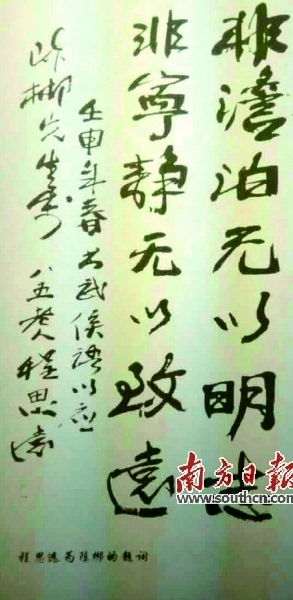 非澹泊无以明志
非寧静无以致遠
壬申年春 书武侯语以应
陈郴先生属 八五老人程思遠
南方日报
www.southcn.com
程思远为陈郴的题词